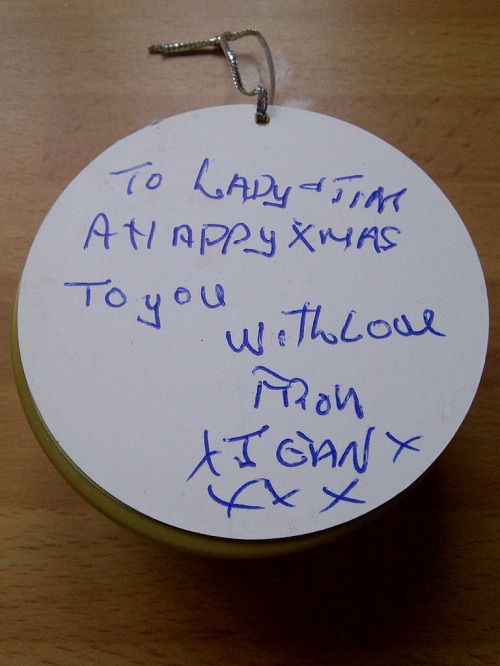 TO LADY & JIM
A HAPPY XMAS
To you
with Love
From
X JEAN X
X X X